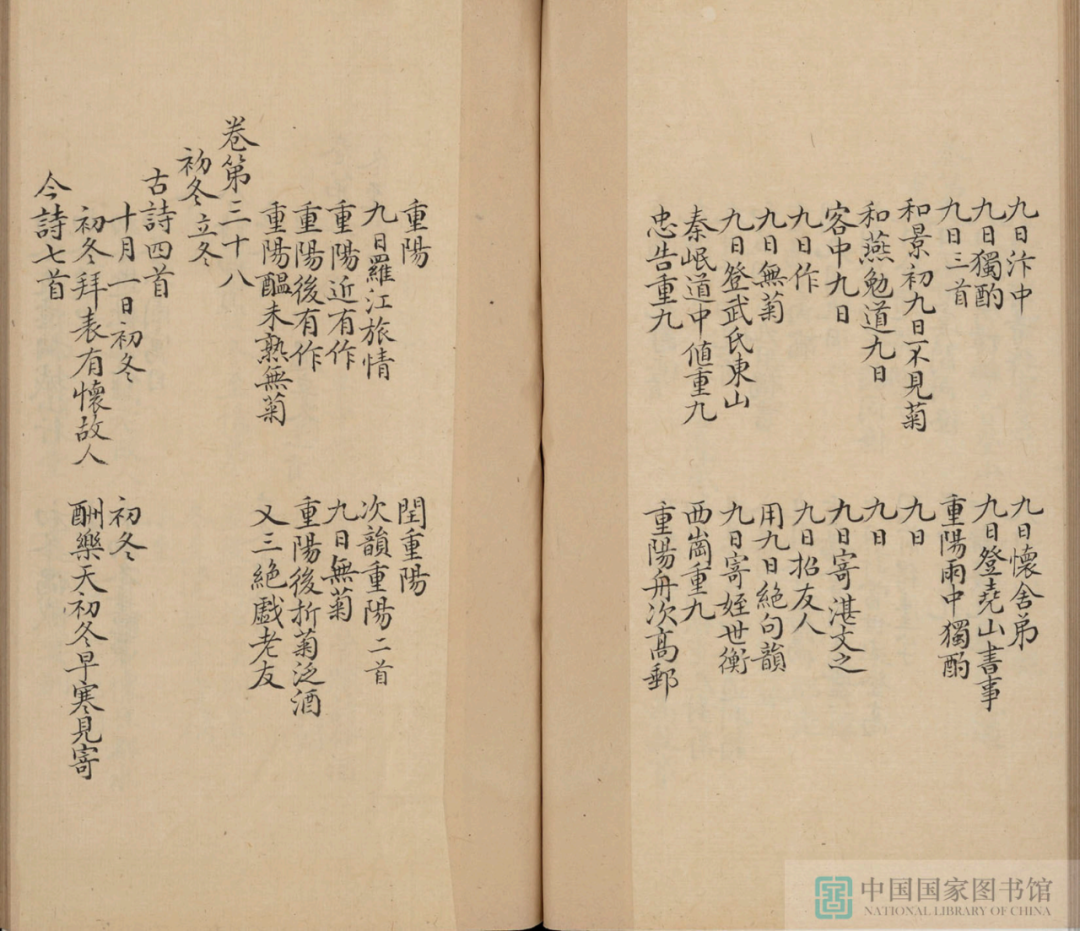 九日汴中　九日懷舍弟
九日獨酌　九日登堯山書事
九日三首　重陽雨中獨酌
和景初九日不見菊　九日
和燕勉道九日　九日
客中九日　九日寄湛文之
九日作　九日招友人
九日無菊　用九日絕句韻
九日登武氏東山　九日寄姪世衡
秦岷道中值重九　西崗重九
忠告重九　重陽舟次高郵
重陽　閏重陽
九日羅江旅情　次韻重陽二首
重陽近有作　九日無菊
重陽後有作　重陽後折菊泛酒
重陽醞未熟無菊　又三絕戲老友
卷第三十八
初冬 立冬
古詩四首
十月一日初冬　初冬
初冬拜表有懷故人　酬樂天初冬早寒見寄
今詩七首
中国国家图书馆
NATIONAL LIBRARY OF CHINA